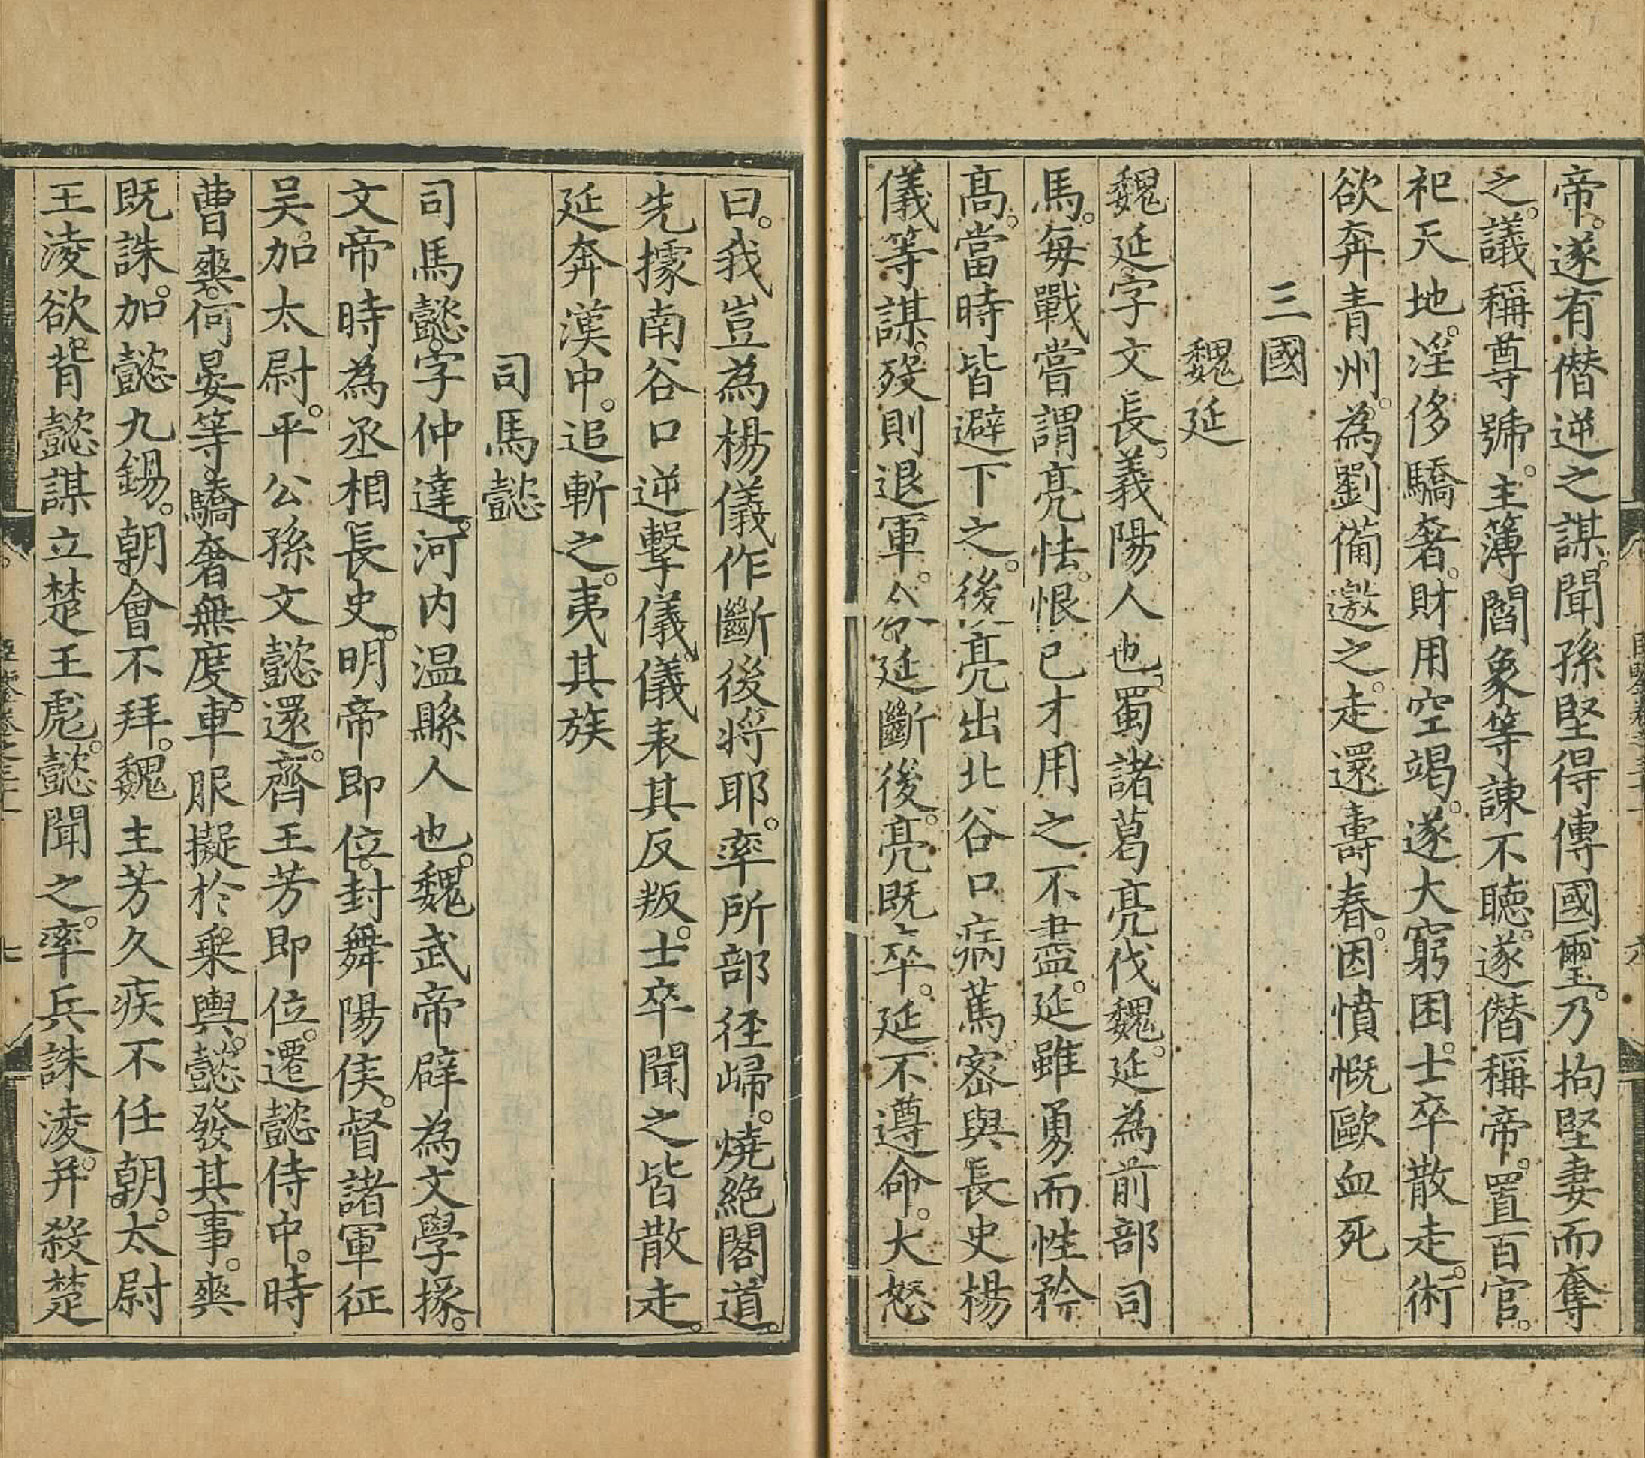 帝。遂有僭逆之謀。聞孫堅得傳國璽。乃拘堅妻而奪
之。議稱尊號。主簿閻象等諫不聽。遂僭稱帝。置百官。
祀天地。淫侈驕奢。財用空竭。遂大窮困。士卒散走。術
欲奔青州。為劉備邀之。走還壽春。因憤慨歐血死
三國
魏延
魏延字文長。義陽人也。蜀諸葛亮伐魏。延為前部司
馬。每戰嘗謂亮怯。恨已才用之不盡。延雖勇而性矜
高。當時皆避下之。後亮出北谷口病篤。密與長史楊
儀等謀。歿則退軍。令延斷後。亮既卒。延不遵命。大怒
曰。我豈為楊儀作斷後將耶。率所部徑歸。燒絕閣道。
先據南谷口逆擊儀。儀表其反叛。士卒聞之皆散走。
延奔漢中。追斬之。夷其族
司馬懿
司馬懿。字仲達。河内温縣人也。魏武帝辟為文學掾。
文帝時為丞相長史。明帝即位。封舞陽侯。督諸軍征
吴。加太尉。平公孫文懿還。齊王芳即位。遷懿侍中。時
曹爽。何晏等。驕奢無度。車服擬於乘輿。懿發其事。爽
既誅。加懿九錫。朝會不拜。魏主芳久疾不任朝。太尉
王淩欲背懿謀立楚王彪。懿聞之。率兵誅淩。并殺楚